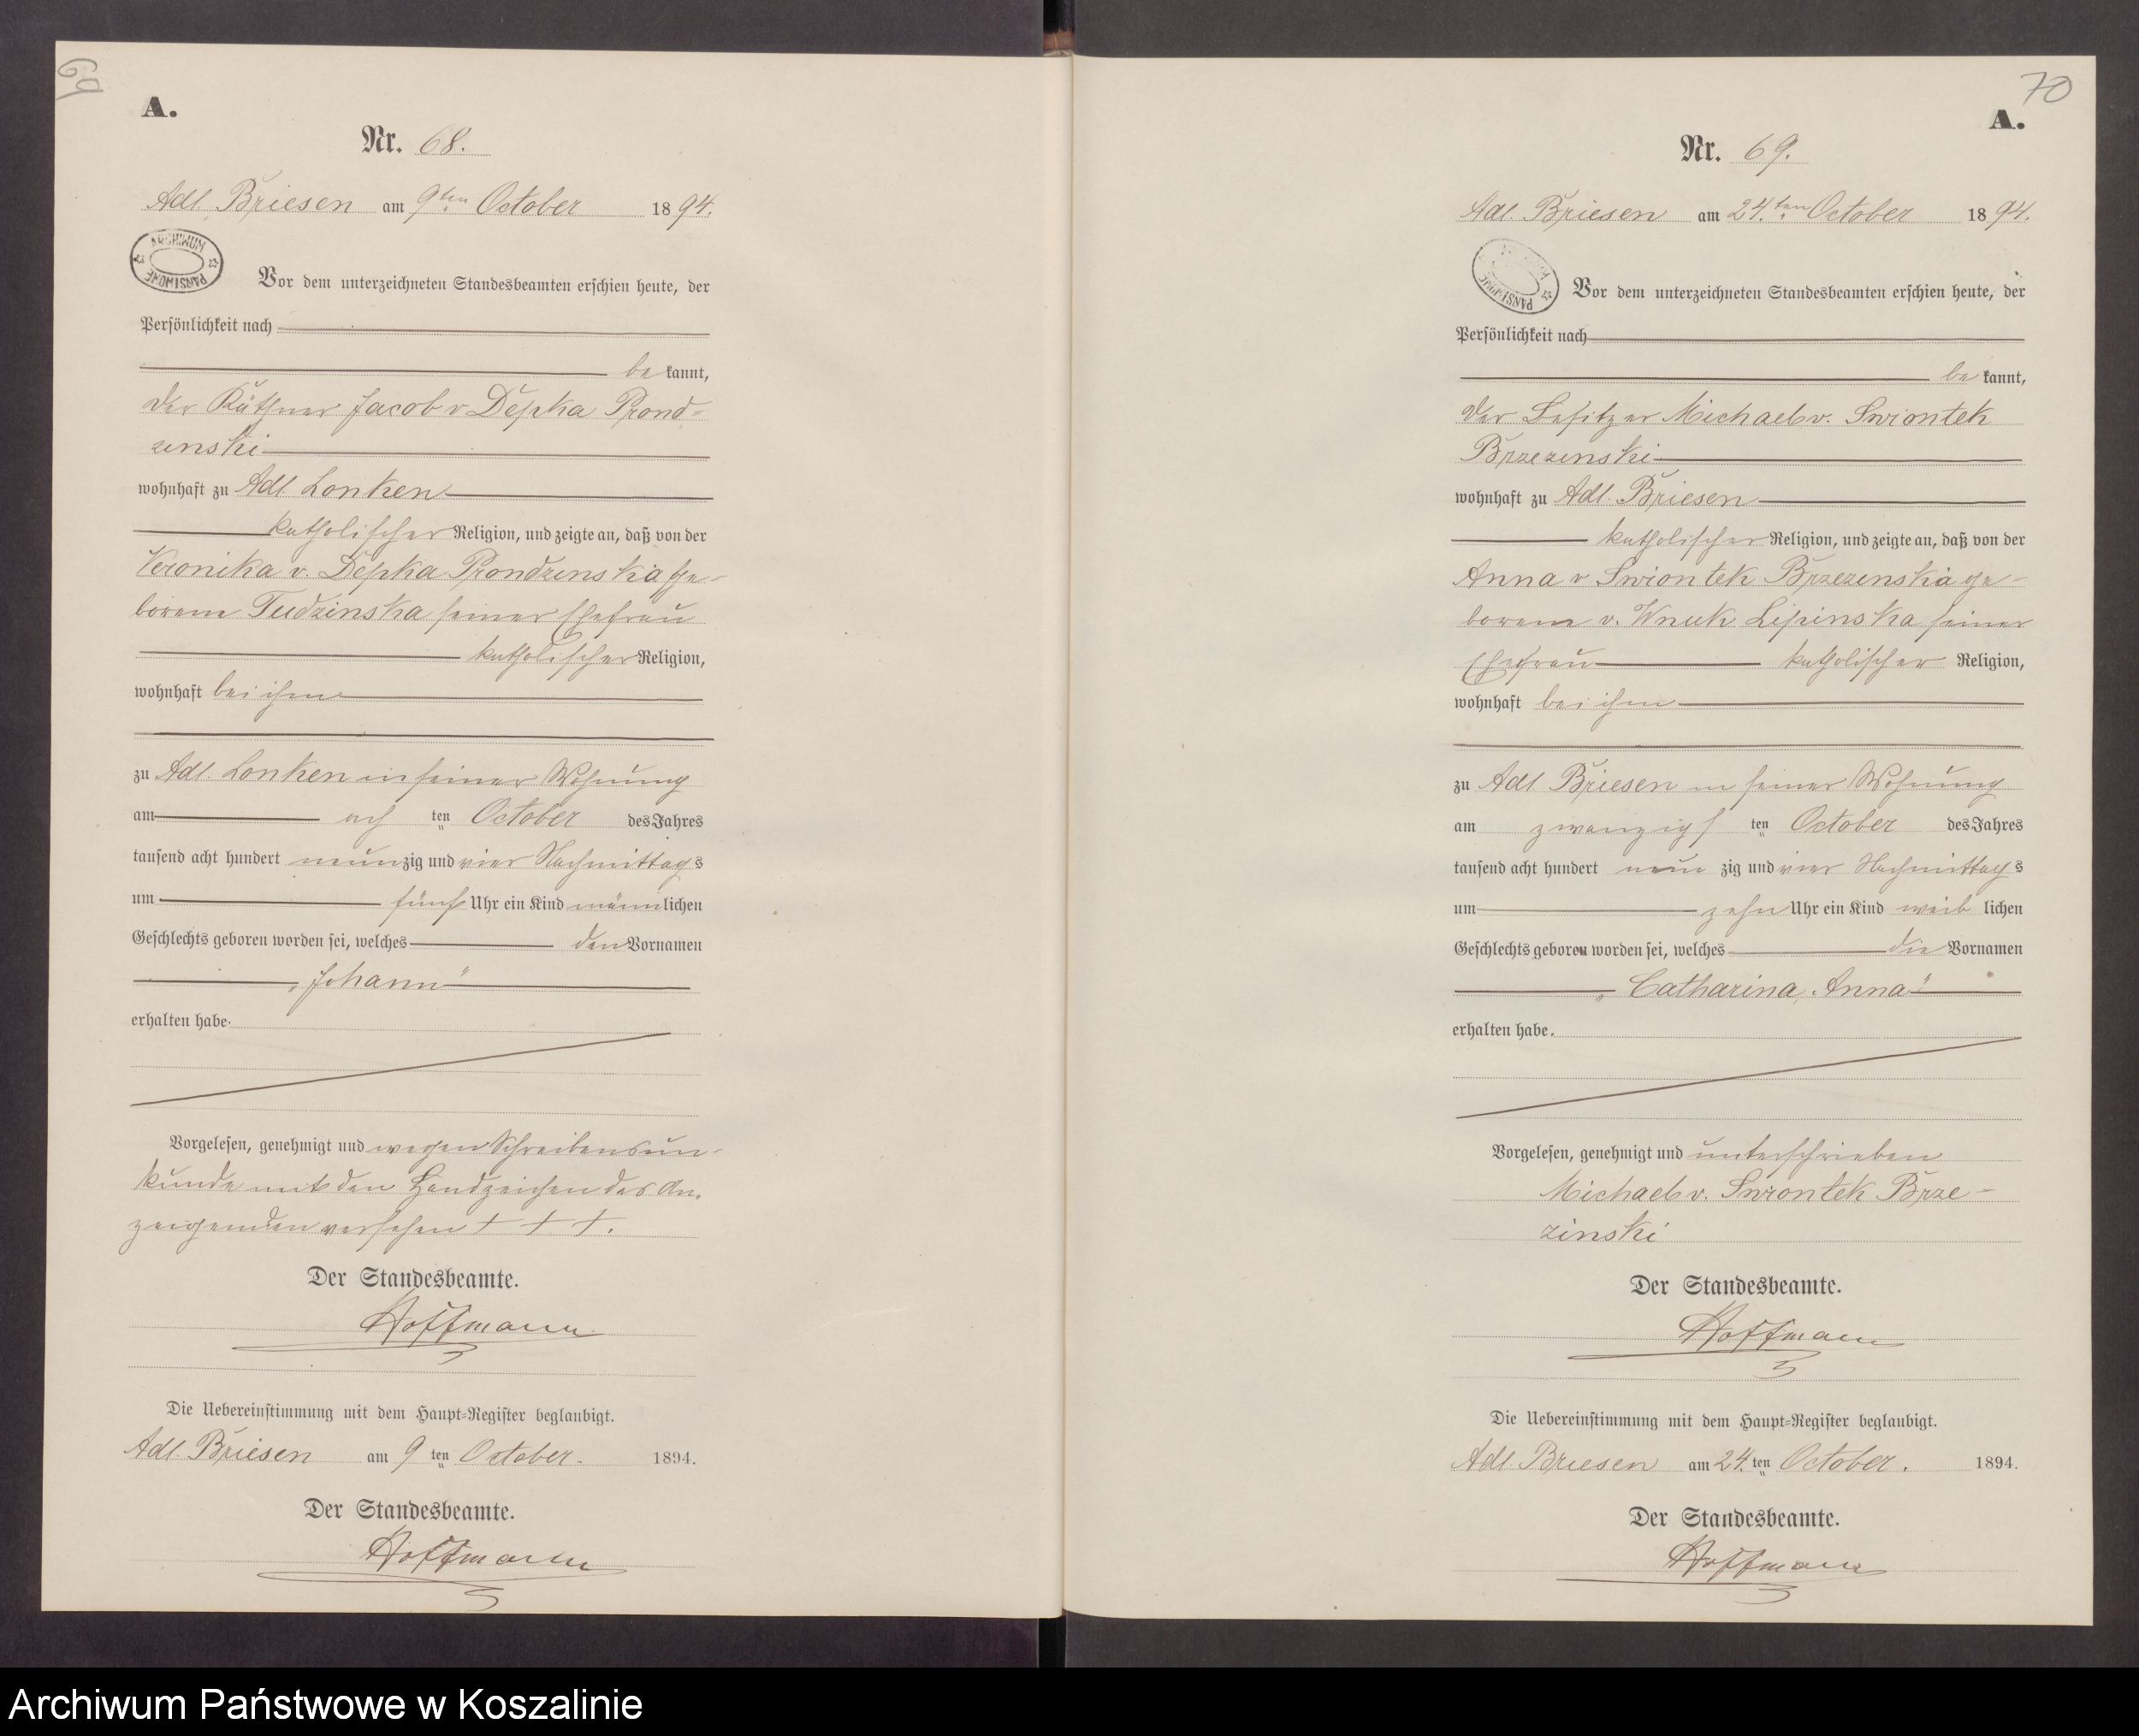 69
A.
Nr. 68.
Adl. Briesen am 9ten October 1894.
ARCHIWUM PAŃSTWOWE
Vor dem unterzeichneten Standesbeamten erschien heute, der
Persönlichkeit nach
bekannt,
der Käthner Jacob v Depka Prond-
zinski
wohnhaft zu Adl Lonken
katholischer Religion, und zeigte an, daß von der
Veronika v. Depka Prondzinska ge-
borene Tudzinska seiner Ehefrau
katholischer Religion,
wohnhaft bei ihm
zu Adl. Lonken in seiner Wohnung
am ach ten October des Jahres
tausend acht hundert neunzig und vier Nachmittags
um fünf Uhr ein Kind männlichen
Geschlechts geboren worden sei, welches den Vornamen
„Johann“
erhalten habe.
Vorgelesen, genehmigt und wegen Schreibensun-
kunde mit den Handzeichen des An-
zeigenden versehen † † †.
Der Standesbeamte.
Hoffmann
Die Uebereinstimmung mit dem Haupt-Register beglaubigt.
Adl. Briesen am 9 ten October. 1894.
Der Standesbeamte.
Hoffmann
70
A.
Nr. 69.
Adl. Briesen am 24.ten October 1894.
Vor dem unterzeichneten Standesbeamten erschien heute, der
Persönlichkeit nach
bekannt,
der Besitzer Michael v. Swiontek
Brzezinski
wohnhaft zu Adl. Briesen
katholischer Religion, und zeigte an, daß von der
Anna v Swiontek Brzezinska ge-
borene v. Wnuk Lipinska seiner
Ehefrau katholischer Religion,
wohnhaft bei ihm
zu Adl Briesen in seiner Wohnung
am zwanzigs ten October des Jahres
tausend acht hundert neun zig und vier Nachmittags
um zehn Uhr ein Kind weib lichen
Geschlechts geboren worden sei, welches die Vornamen
„Catharina, Anna“
erhalten habe.
Vorgelesen, genehmigt und unterschrieben
Michael v. Swiontek Brze-
zinski
Der Standesbeamte.
Hoffmann
Die Uebereinstimmung mit dem Haupt-Register beglaubigt.
Adl. Briesen am 24. ten October. 1894.
Der Standesbeamte.
Hoffmann
Archiwum Państwowe w Koszalinie